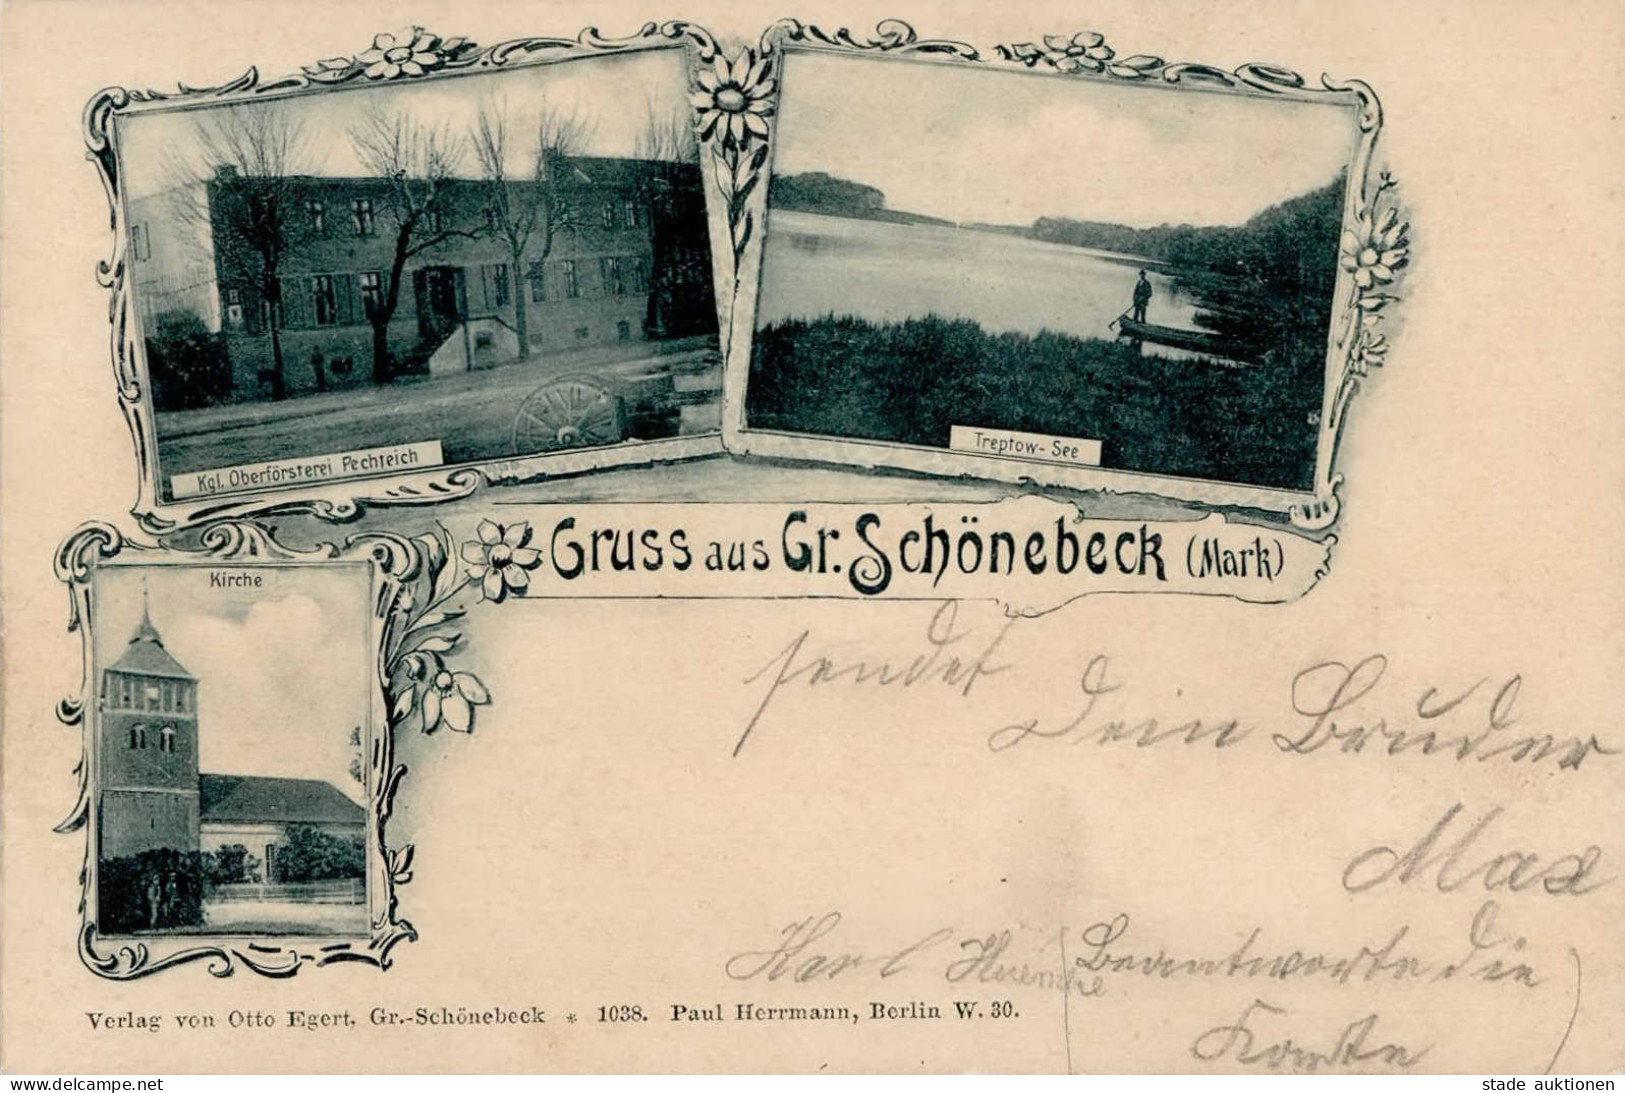 Kgl. Oberförsterei Pechteich
Treptow-See
Gruss aus Gr. Schönebeck (Mark)
Kirche
sendet
Dein Bruder
Max
Karl
(Beantworte die
Karte)
Verlag von Otto Egert, Gr.-Schönebeck * 1038. Paul Herrmann, Berlin W. 30.
delcampe.net
stade auktionen